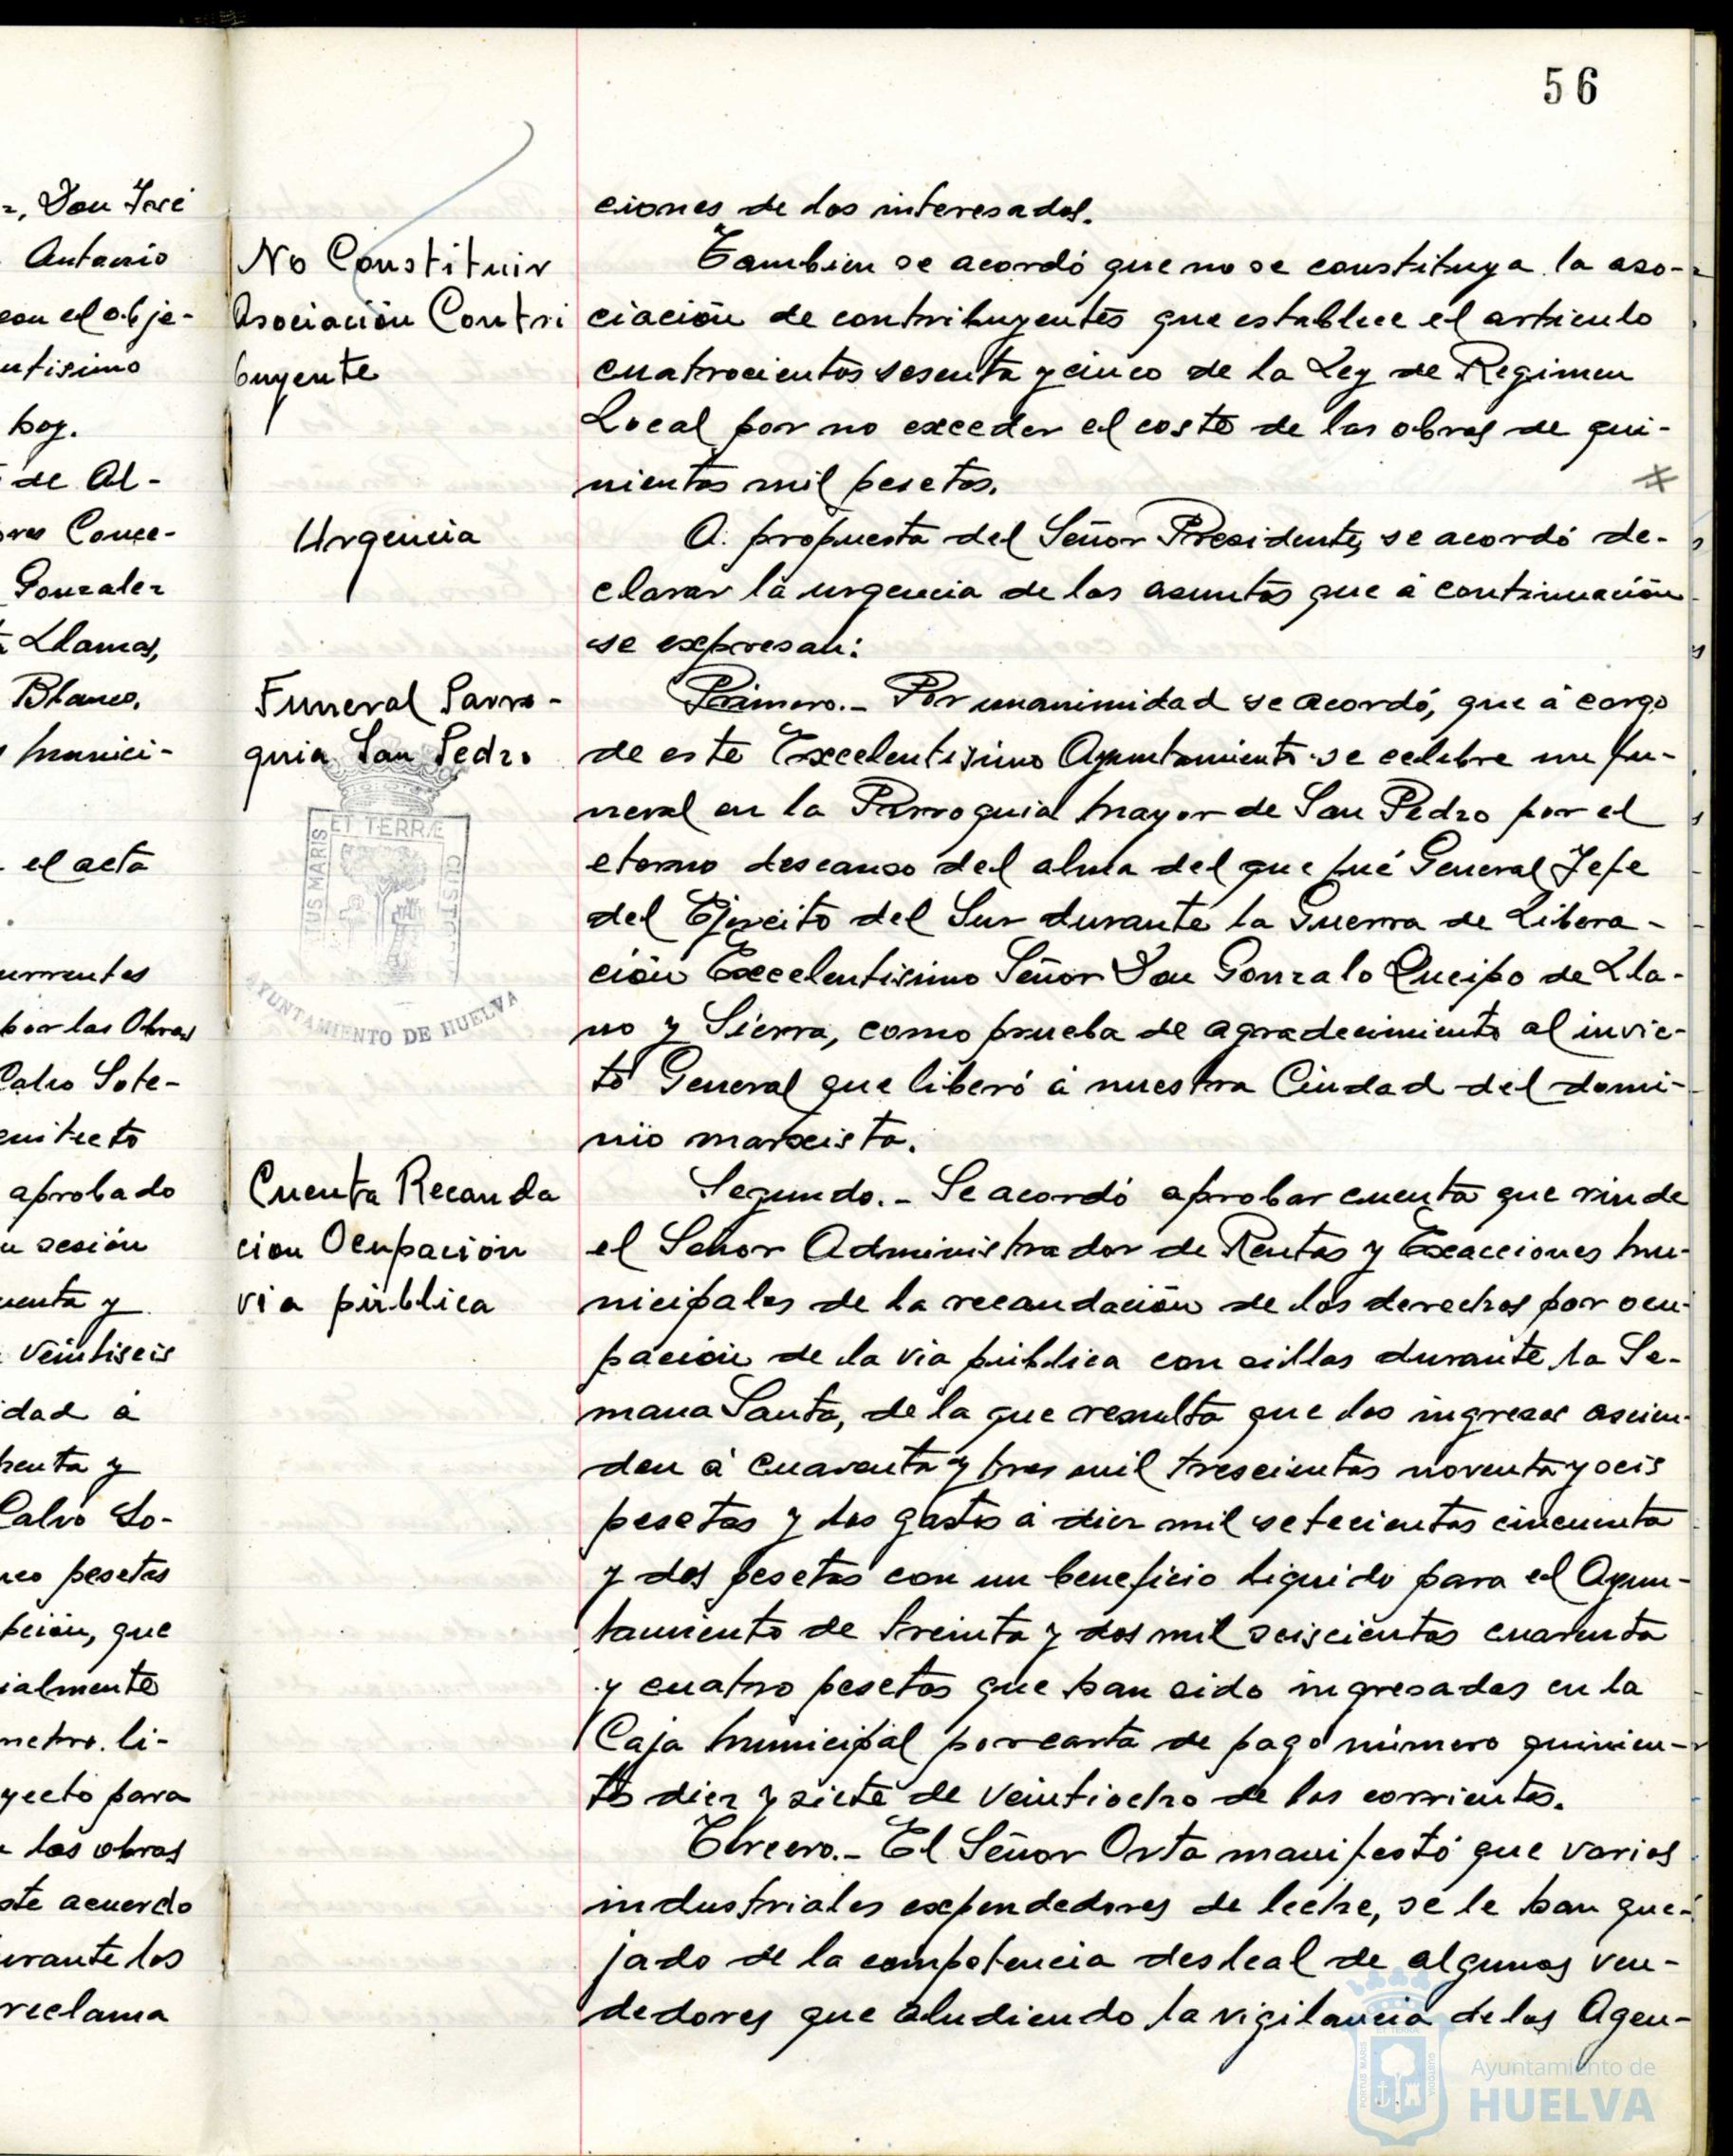 56
z, Don José
Antonio
con el obje-
ntisimo
hoy.
de Al-
ores Conce-
Gonzalez
Llamas,
Blanco,
munici-
el acta
urrentes
por las Obras
Calvo Sote-
quitecto
aprobado
n sesión
uenta y
veintiseis
idad á
henta y
Calvo So-
nco pesetas
pción, que
ialmente
metro li-
yecto para
las obras
ste acuerdo
urante los
reclama
No Constituir
Asociación Contri
buyente
Urgencia
Funeral Parro-
quia San Pedro
TUS MARIS ET TERRÆ CUSTO
AYUNTAMIENTO DE HUELVA
Cuenta Recauda
cion Ocupación
via pública
ciones de los interesados.
Tambien se acordó que no se constituya la aso-
ciación de contribuyentes que establece el articulo
cuatrocientos sesenta y cinco de la Ley de Regimen
Local por no exceder el coste de las obras de qui-
nientas mil pesetas.
A propuesta del Señor Presidente, se acordó de-
clarar la urgencia de los asuntos que á continuación
se expresan:
Primero.- Por unanimidad se acordó, que á cargo
de este Excelentisimo Ayuntamiento se celebre un fu-
neral en la Parroquia Mayor de San Pedro por el
eterno descanso del alma del que fué General Jefe
del Ejercito del Sur durante la Guerra de Libera-
ción Excelentisimo Señor Don Gonzalo Queipo de Lla-
no y Sierra, como prueba de agradecimiento al invic-
to General que liberó á nuestra Ciudad del domi-
nio marxista.
Segundo.- Se acordó aprobar cuenta que rinde
el Señor Administrador de Rentas y Exacciones Mu-
nicipales de la recaudación de los derechos por ocu-
pación de la via pública con sillas durante la Se-
mana Santa, de la que resulta que los ingresos ascien-
den á cuarenta y tres mil trescientas noventa y seis
pesetas y los gastos á diez mil setecientas cincuenta
y dos pesetas con un beneficio liquido para el Ayun-
tamiento de treinta y dos mil seiscientas cuarenta
y cuatro pesetas que han sido ingresadas en la
Caja Municipal por carta de pago número quinien-
tos diez y siete de veintiocho de los corrientes.
Tercero.- El Señor Orta manifestó que varios
industriales expendedores de leche, se le han que-
jado de la competencia desleal de algunos ven-
dedores que eludiendo la vigilancia de los Agen-
Ayuntamiento de
HUELVA